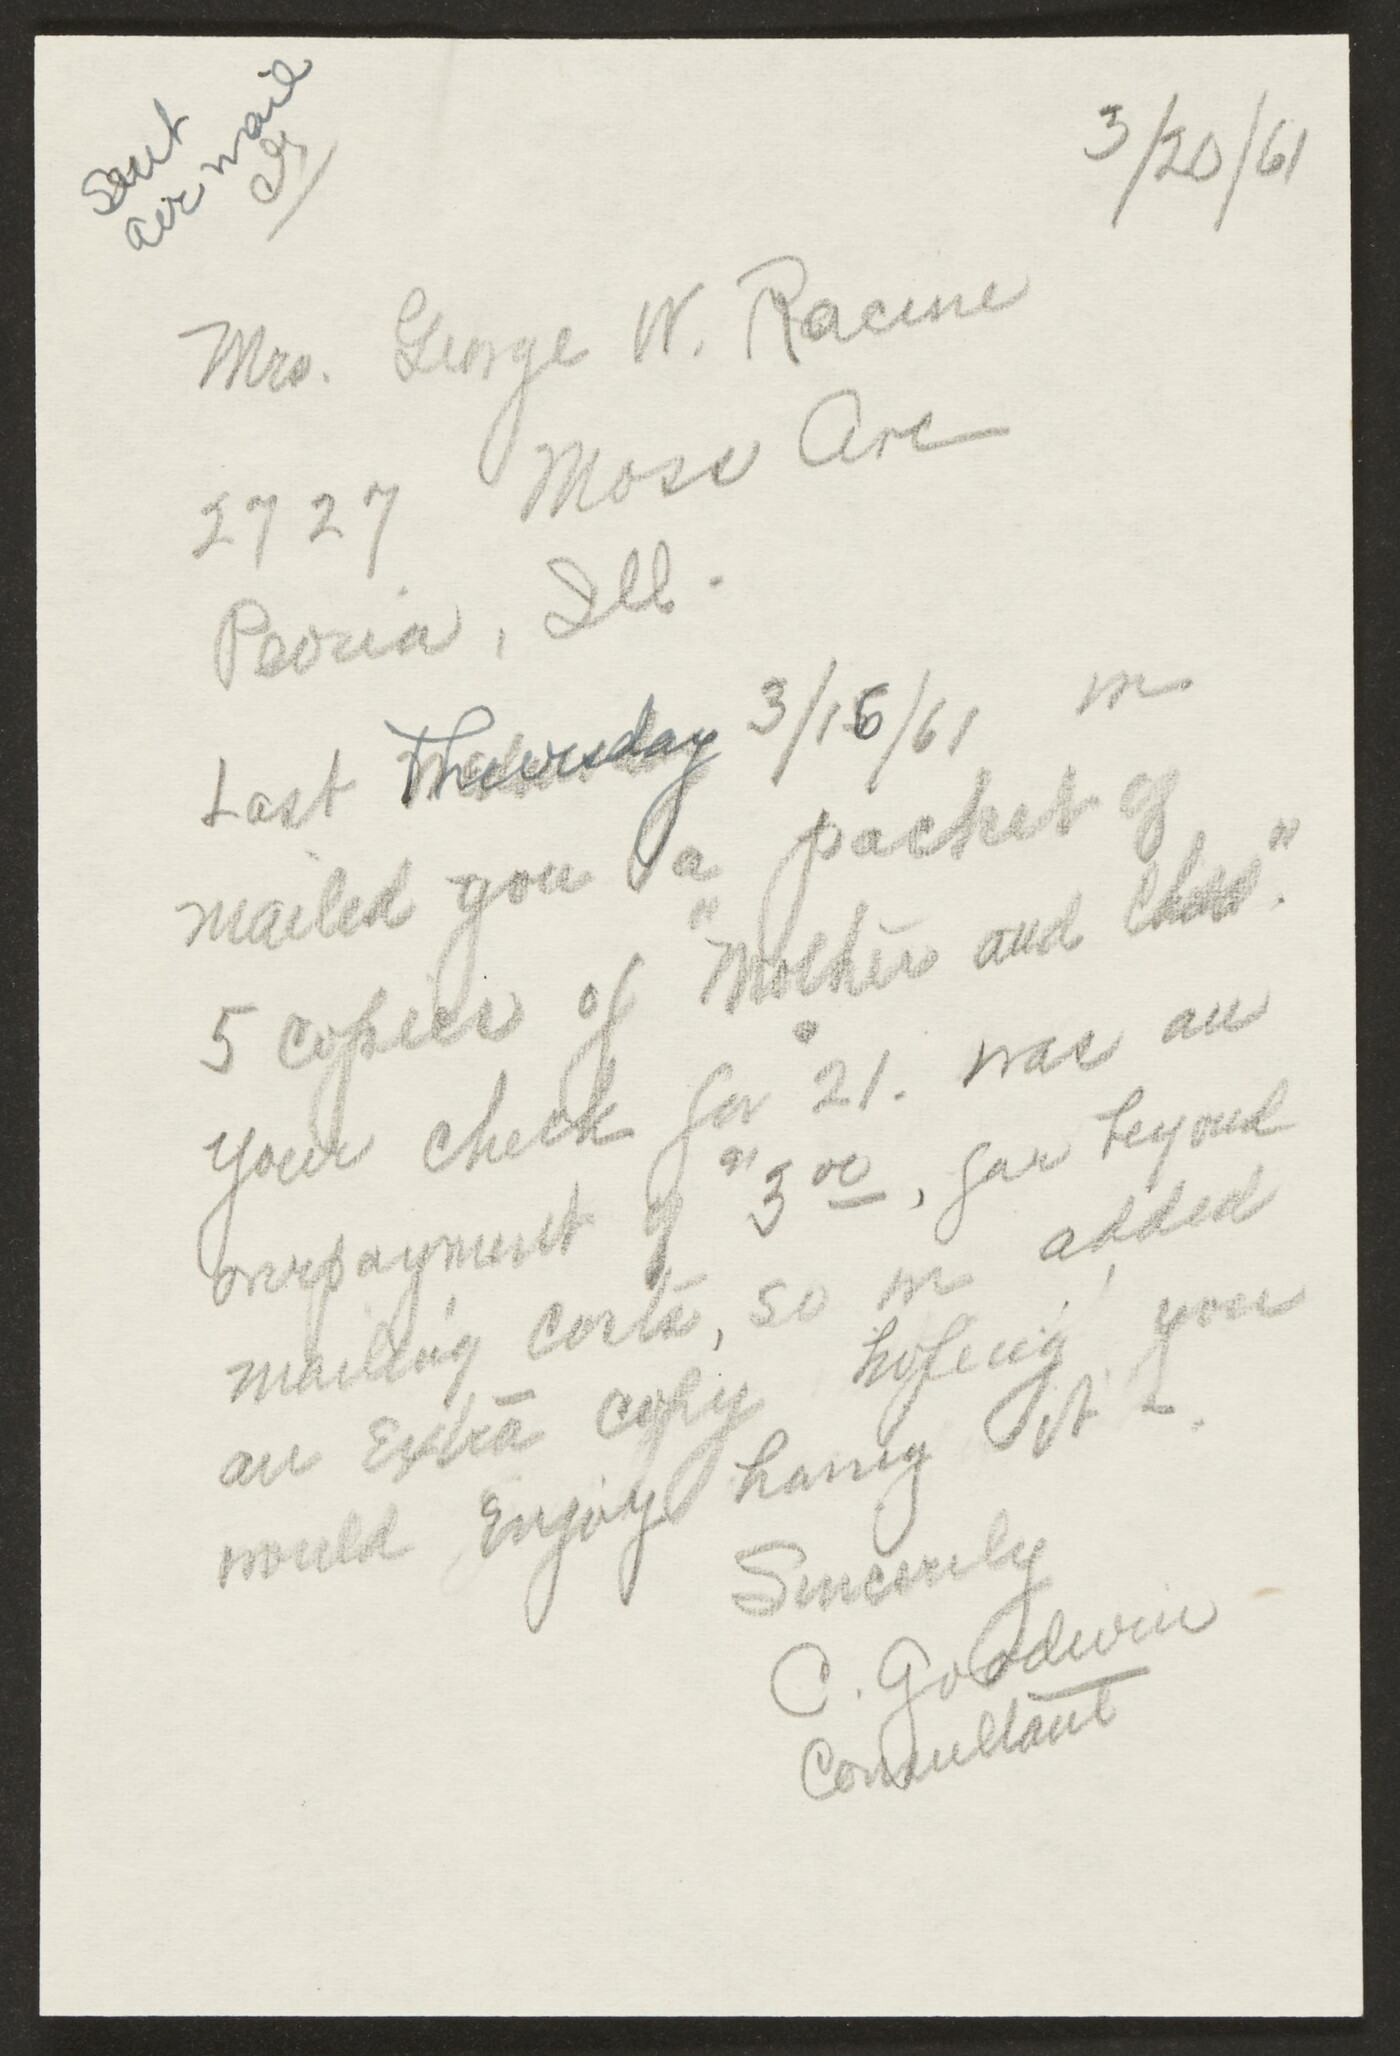 Sent
air mail
3/20/61
Mrs. George W. Racine
2727 Moss Ave
Peoria, Ill.
Last Thursday 3/16/61 we
mailed you a packet of
5 copies of "Mother and Child."
Your check for 21. was an
overpayment of 3 00, far beyond
mailing costs, so we added
an Extra copy hoping you
would Enjoy having it
Sincerely
C. Goodwin
Consultant